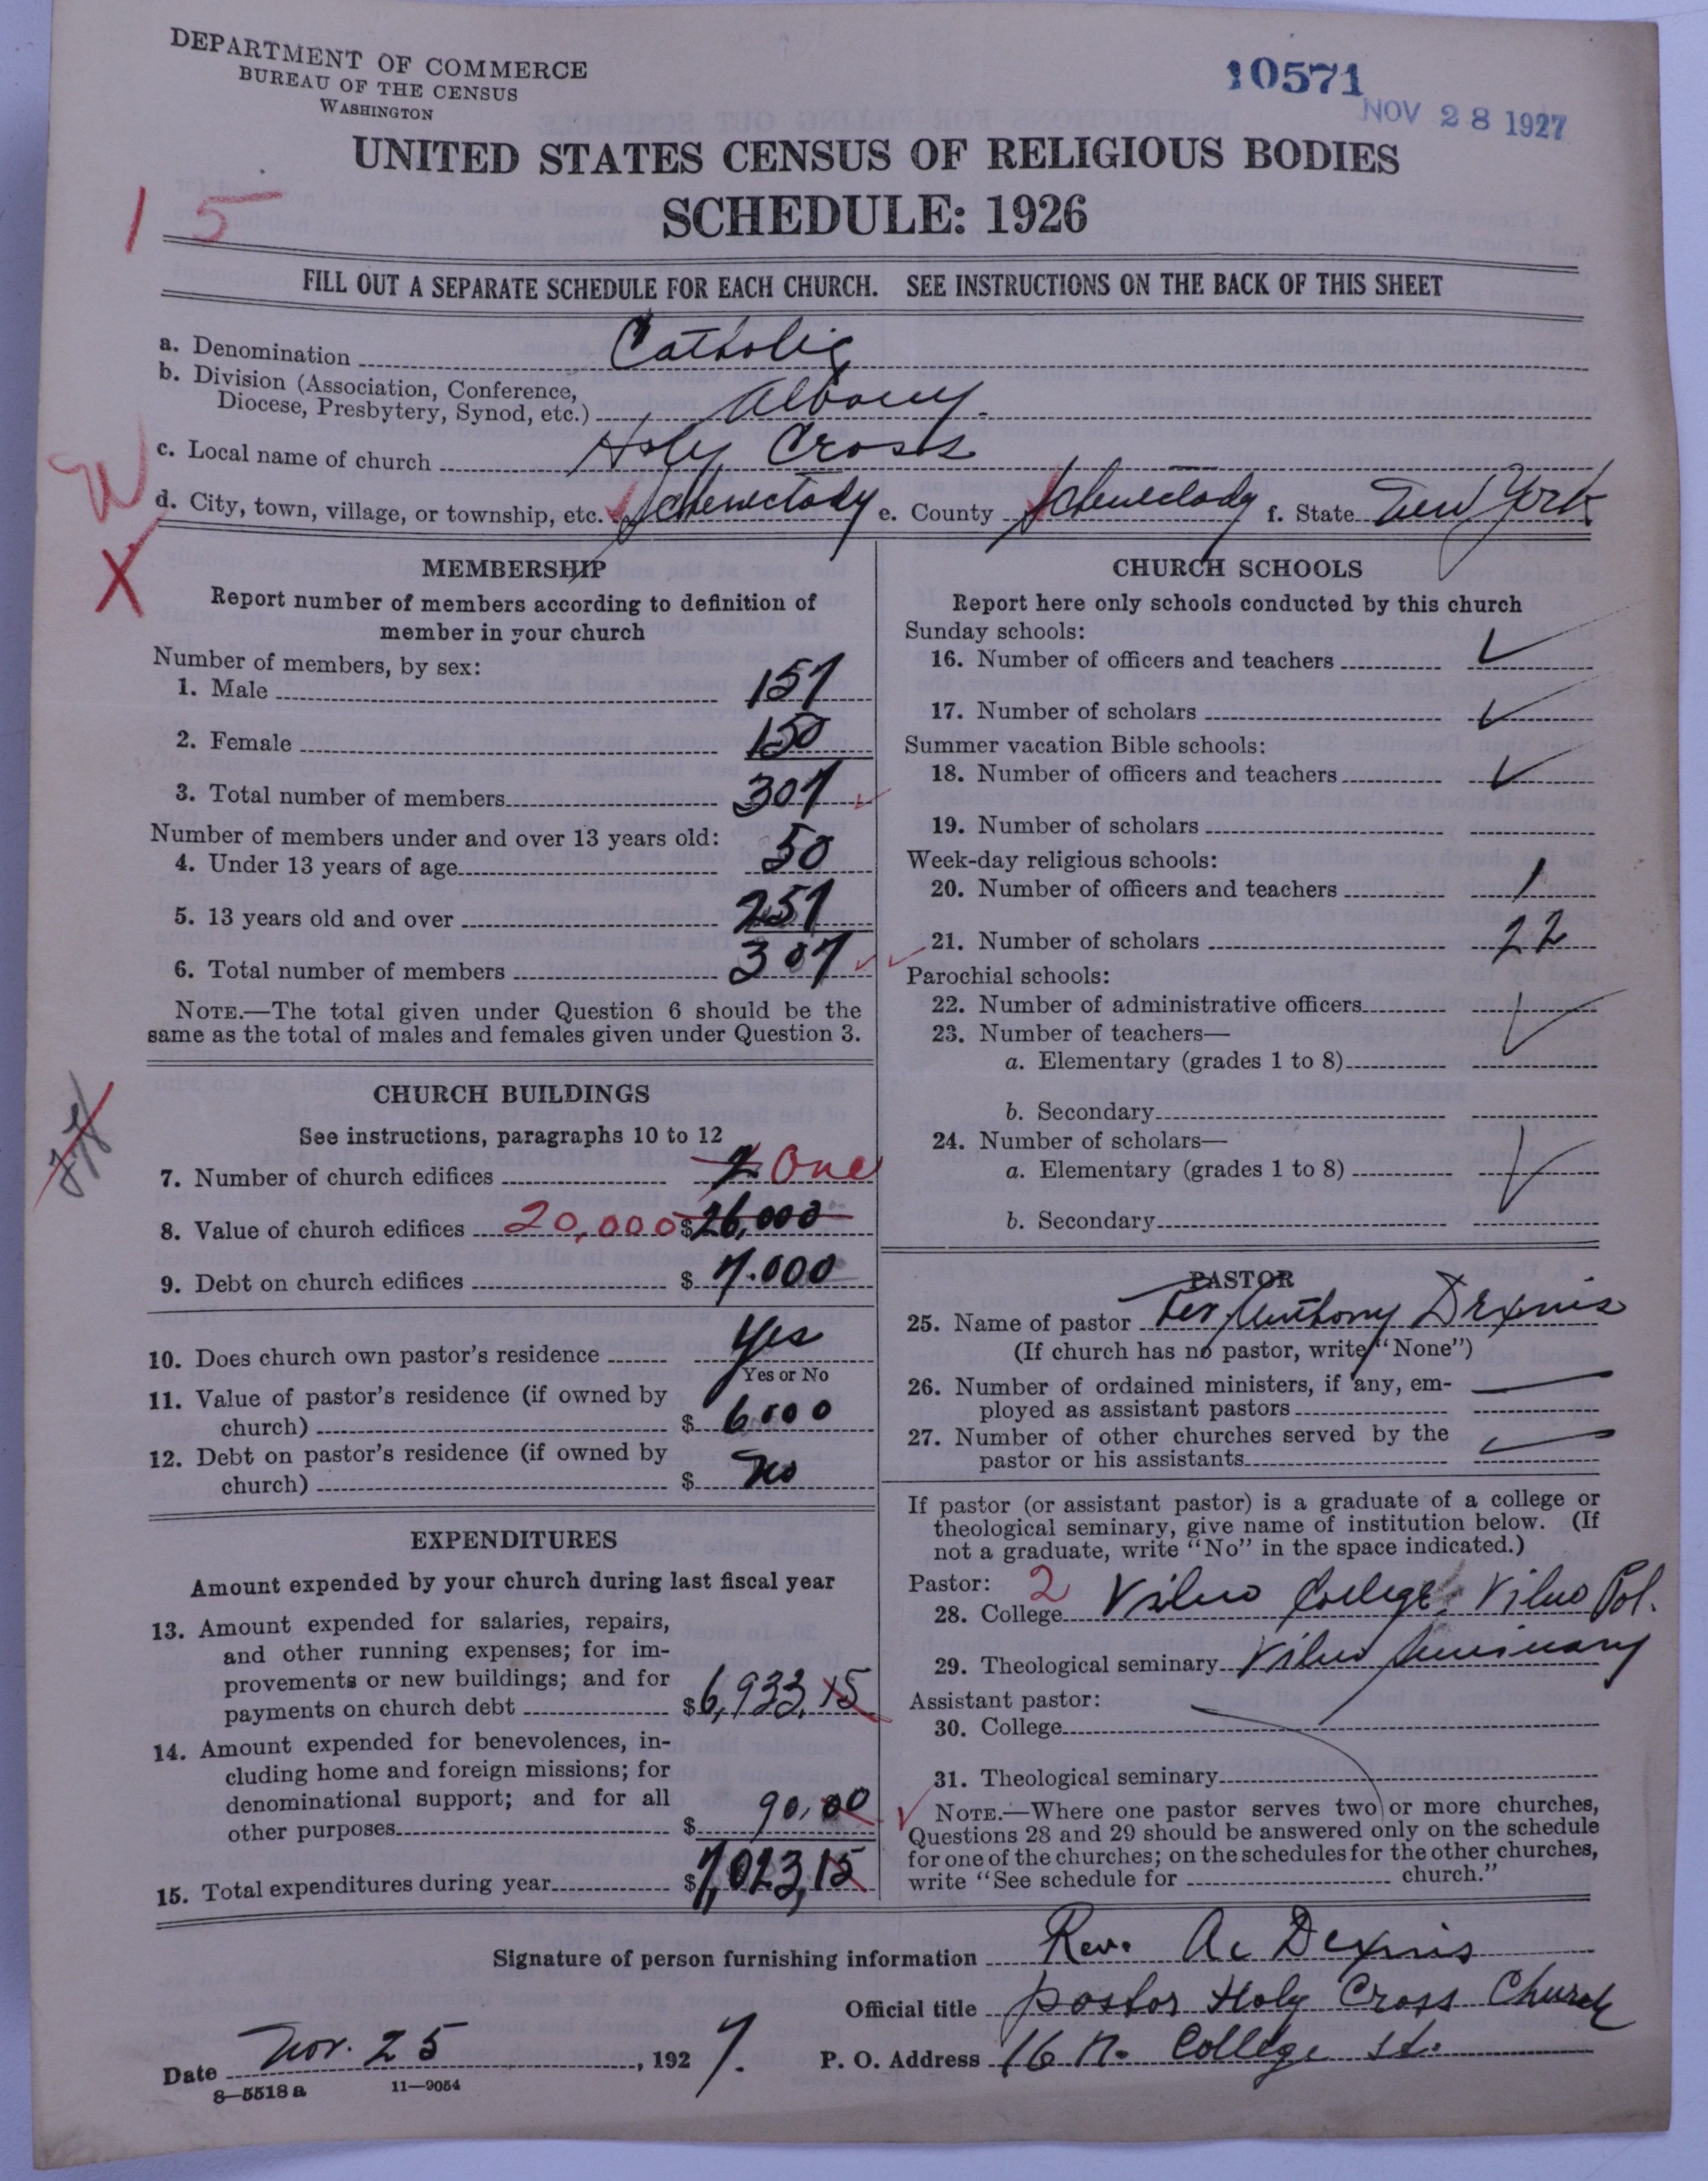 DEPARTMENT OF COMMERCE
BUREAU OF THE CENSUS
WASHINGTON
10571
NOV 28 1927
UNITED STATES CENSUS OF RELIGIOUS BODIES
SCHEDULE: 1926
15
FILL OUT A SEPARATE SCHEDULE FOR EACH CHURCH. SEE INSTRUCTIONS ON THE BACK OF THIS SHEET
a. Denomination Catholic
b. Division (Association, Conference,
Diocese, Presbytery, Synod, etc.) Albany.
c. Local name of church Holy Cross
d. City, town, village, or township, etc. Schenectady e. County Schenectady f. State New York
X
MEMBERSHIP
Report number of members according to definition of
member in your church
Number of members, by sex:
1. Male 157
2. Female 150
3. Total number of members 307
Number of members under and over 13 years old:
4. Under 13 years of age 50
5. 13 years old and over 257
6. Total number of members 307
NOTE.—The total given under Question 6 should be the
same as the total of males and females given under Question 3.
CHURCH BUILDINGS
See instructions, paragraphs 10 to 12
7. Number of church edifices 2 One
8. Value of church edifices 20,000 $26,000
9. Debt on church edifices $ 7.000
10. Does church own pastor's residence Yes
Yes or No
11. Value of pastor's residence (if owned by
church) $ 6000
12. Debt on pastor's residence (if owned by
church) $ No
EXPENDITURES
Amount expended by your church during last fiscal year
13. Amount expended for salaries, repairs,
and other running expenses; for im-
provements or new buildings; and for
payments on church debt $6,933.15
14. Amount expended for benevolences, in-
cluding home and foreign missions; for
denominational support; and for all
other purposes $ 90,00
15. Total expenditures during year $7,023,15
CHURCH SCHOOLS
Report here only schools conducted by this church
Sunday schools:
16. Number of officers and teachers
17. Number of scholars
Summer vacation Bible schools:
18. Number of officers and teachers
19. Number of scholars
Week-day religious schools:
20. Number of officers and teachers 1
21. Number of scholars 22
Parochial schools:
22. Number of administrative officers
23. Number of teachers—
a. Elementary (grades 1 to 8)
b. Secondary
24. Number of scholars—
a. Elementary (grades 1 to 8)
b. Secondary
PASTOR
25. Name of pastor Rev Anthony Dexnis
(If church has no pastor, write "None")
26. Number of ordained ministers, if any, em-
ployed as assistant pastors
27. Number of other churches served by the
pastor or his assistants
If pastor (or assistant pastor) is a graduate of a college or
theological seminary, give name of institution below. (If
not a graduate, write "No" in the space indicated.)
Pastor: 2
28. College Vilno College, Vilno Pol.
29. Theological seminary Vilno Seminary
Assistant pastor:
30. College
31. Theological seminary
NOTE.—Where one pastor serves two or more churches,
Questions 28 and 29 should be answered only on the schedule
for one of the churches; on the schedules for the other churches,
write "See schedule for church."
Signature of person furnishing information Rev. A. Dexnis
Official title pastor Holy Cross Church
Date Nov. 25, 1927. P. O. Address 16 N. College St.
8—5518 a 11—9054